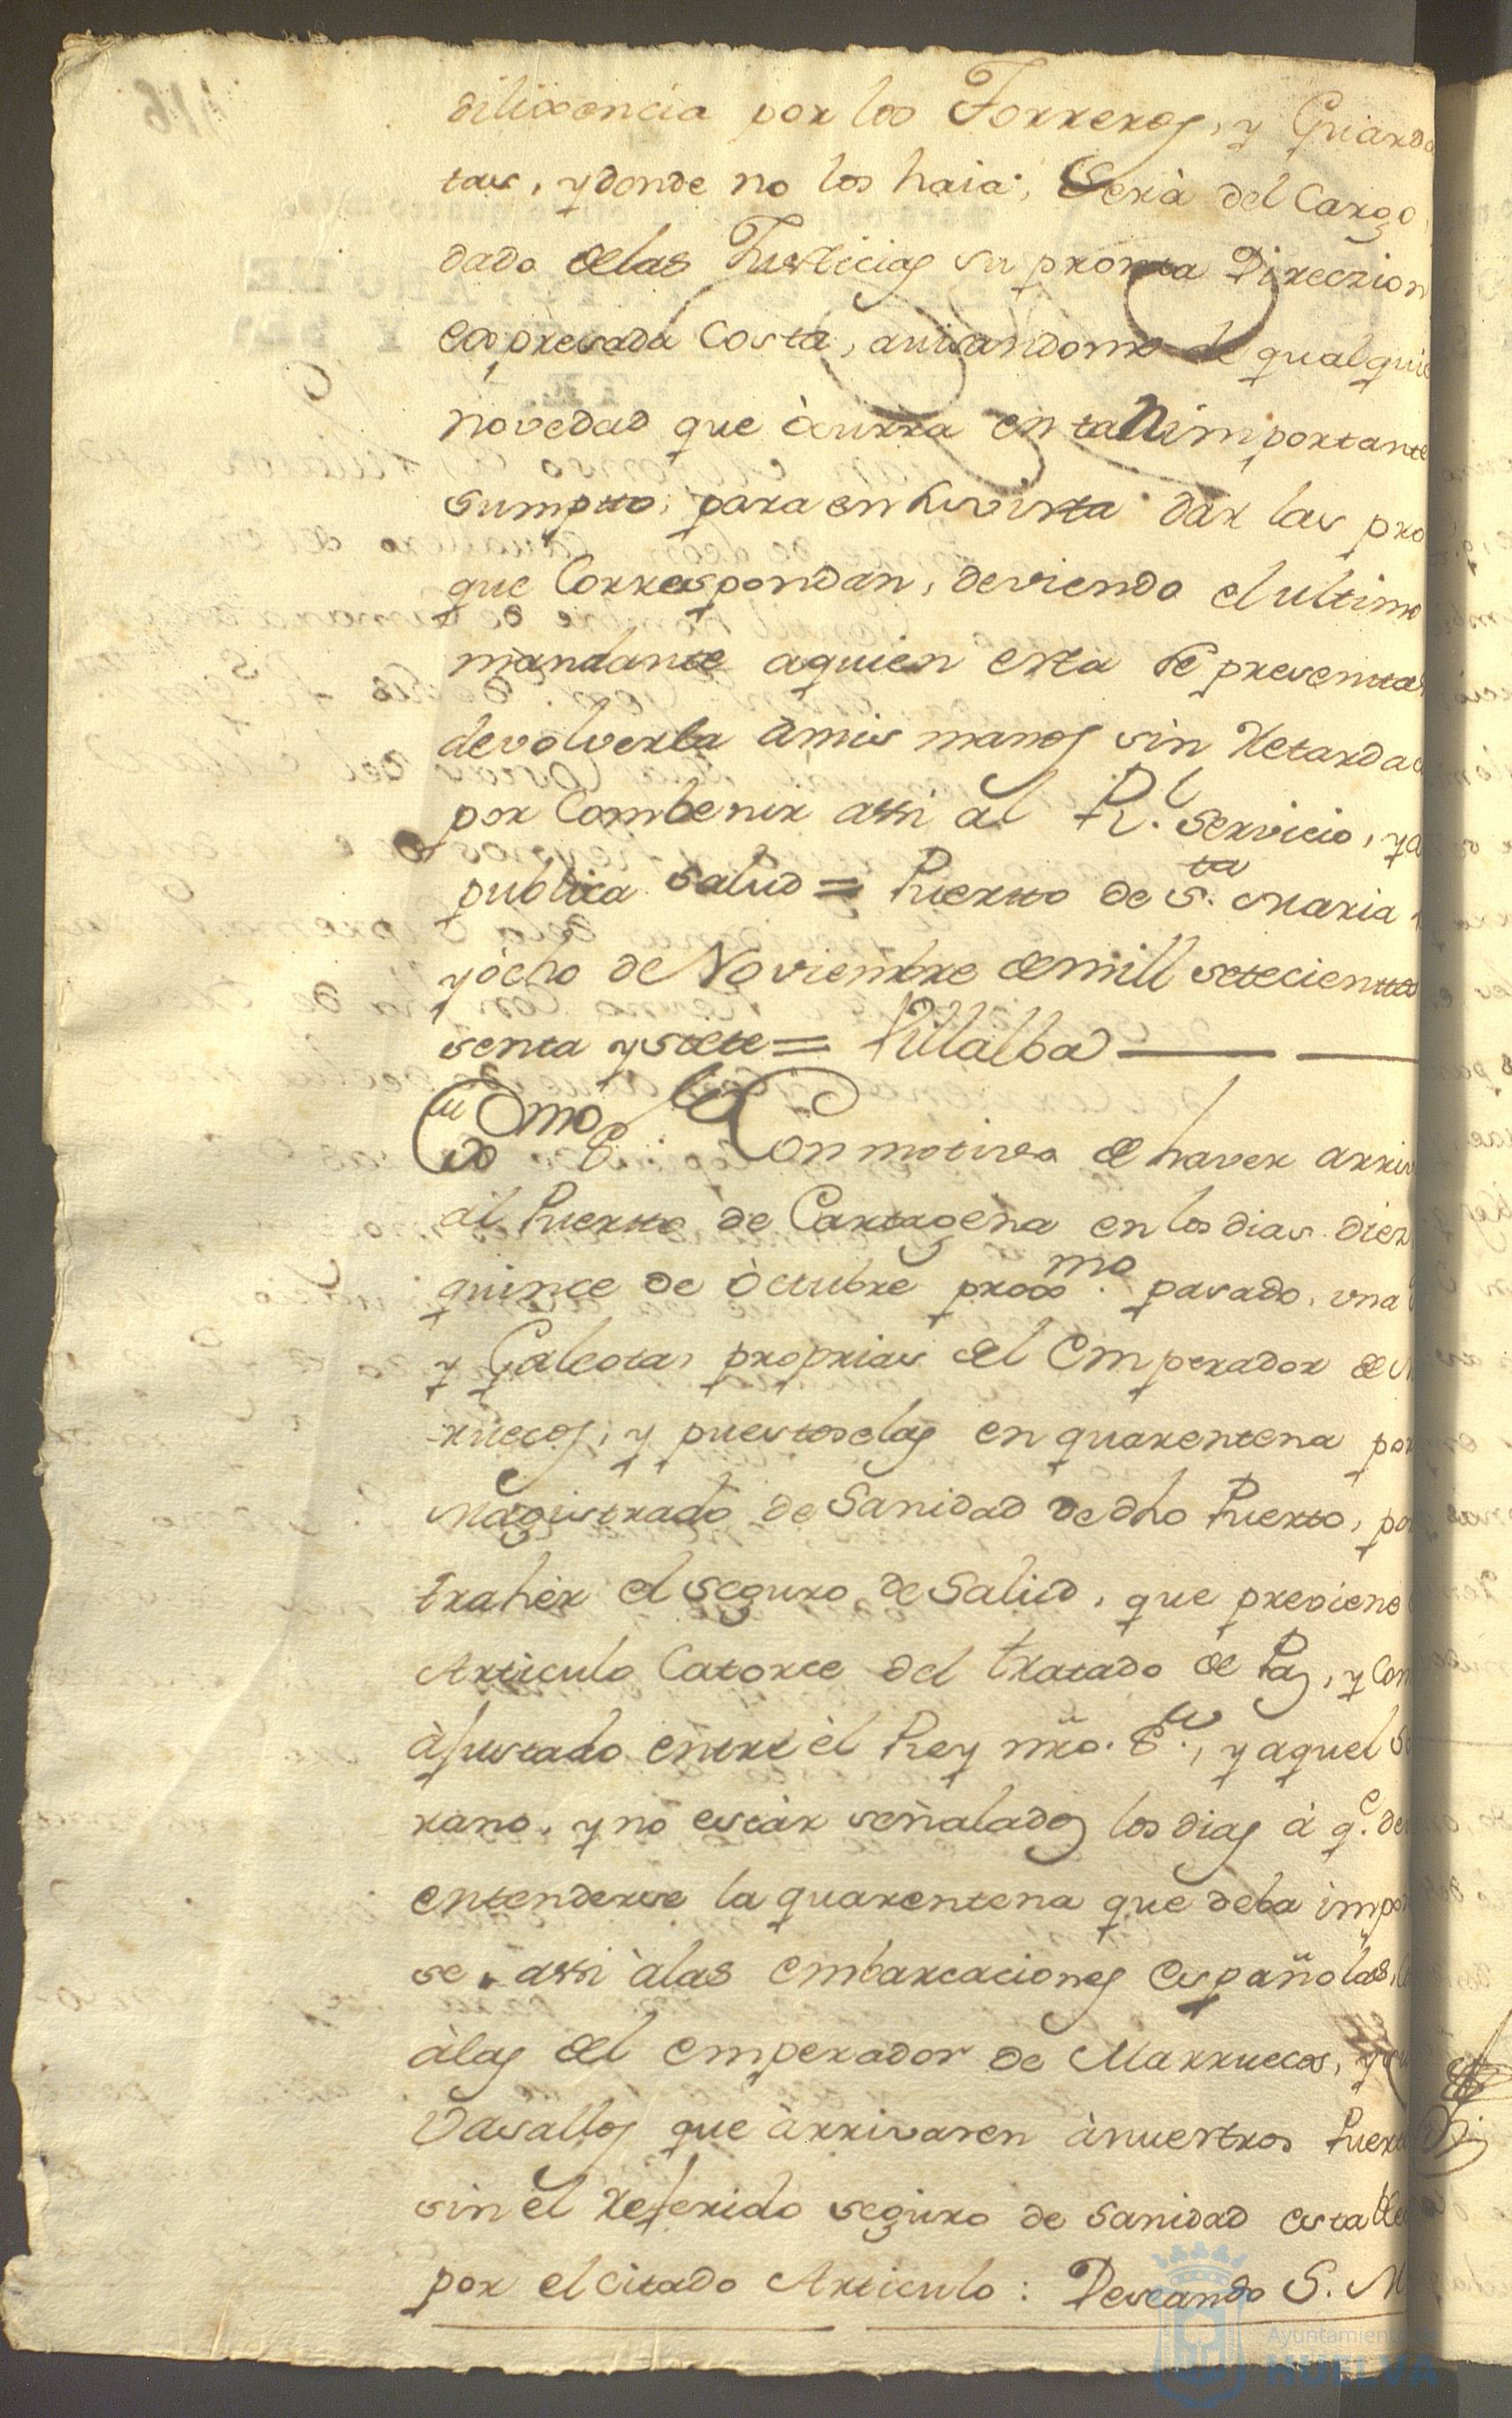 dilixencia por los Torreros, y Guarda
tas, y donde no los haia, Será del Cargo,
dado delas Justicias su pronta Direczion
expresada Costa, avisandome de qualquie
novedad que òcurra en tan importante
sumptto, para en su vista dar las pro
que Correspondan, deviendo el ultimo
mandante aquien esta se presentta
devolverla àmis manos sin Retarda
por Combenir assi al Rl. servicio, ya
publica salud = Puertto de Sta. Maria
yòcho de Noviembre demill setecienttos
senta ysiete = Villalba
Exmo Sr. Con motivo de haver arriv
al Puertto de Cartagena en los dias diez
quince de òctubre proxmo. pasado, una
y Galeotas proprias del Emperador de M
rruecos, y puestoselas en quarentena por
Magistrado de Sanidad de dho Puerto, po
traher el seguro de Salud, que previene
Articulo Catorce del tratado de Paz, y Com
àjustado entre èl Rey nro. Sr., y aquel So
rano, y no estàr señalados los dias à qe. de
entenderse la quarentena que deba impo
se, assi àlas embarcaciones españolas,
àlas del emperador de Marruecos, y su
Vasallos que àrrivaren ànuestros Puert
sin el Referido seguro de sanidad estable
por el citado Articulo: Deseando S. M
Ayuntamiento de
HUELVA